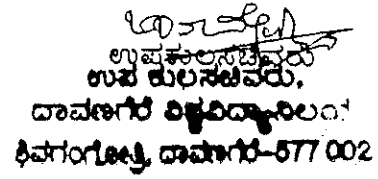 ಉಪಕುಲಸಚಿವರು
ಉಪ ಕುಲಸಚಿವರು,
ದಾವಣಗೆರೆ ವಿಶ್ವವಿದ್ಯಾನಿಲಯ
ಶಿವಗಂಗೋತ್ರಿ, ದಾವಣಗೆರೆ-577 002